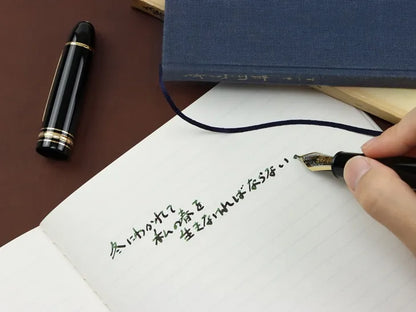 冬にわかれて
私の春を
生きなければならない